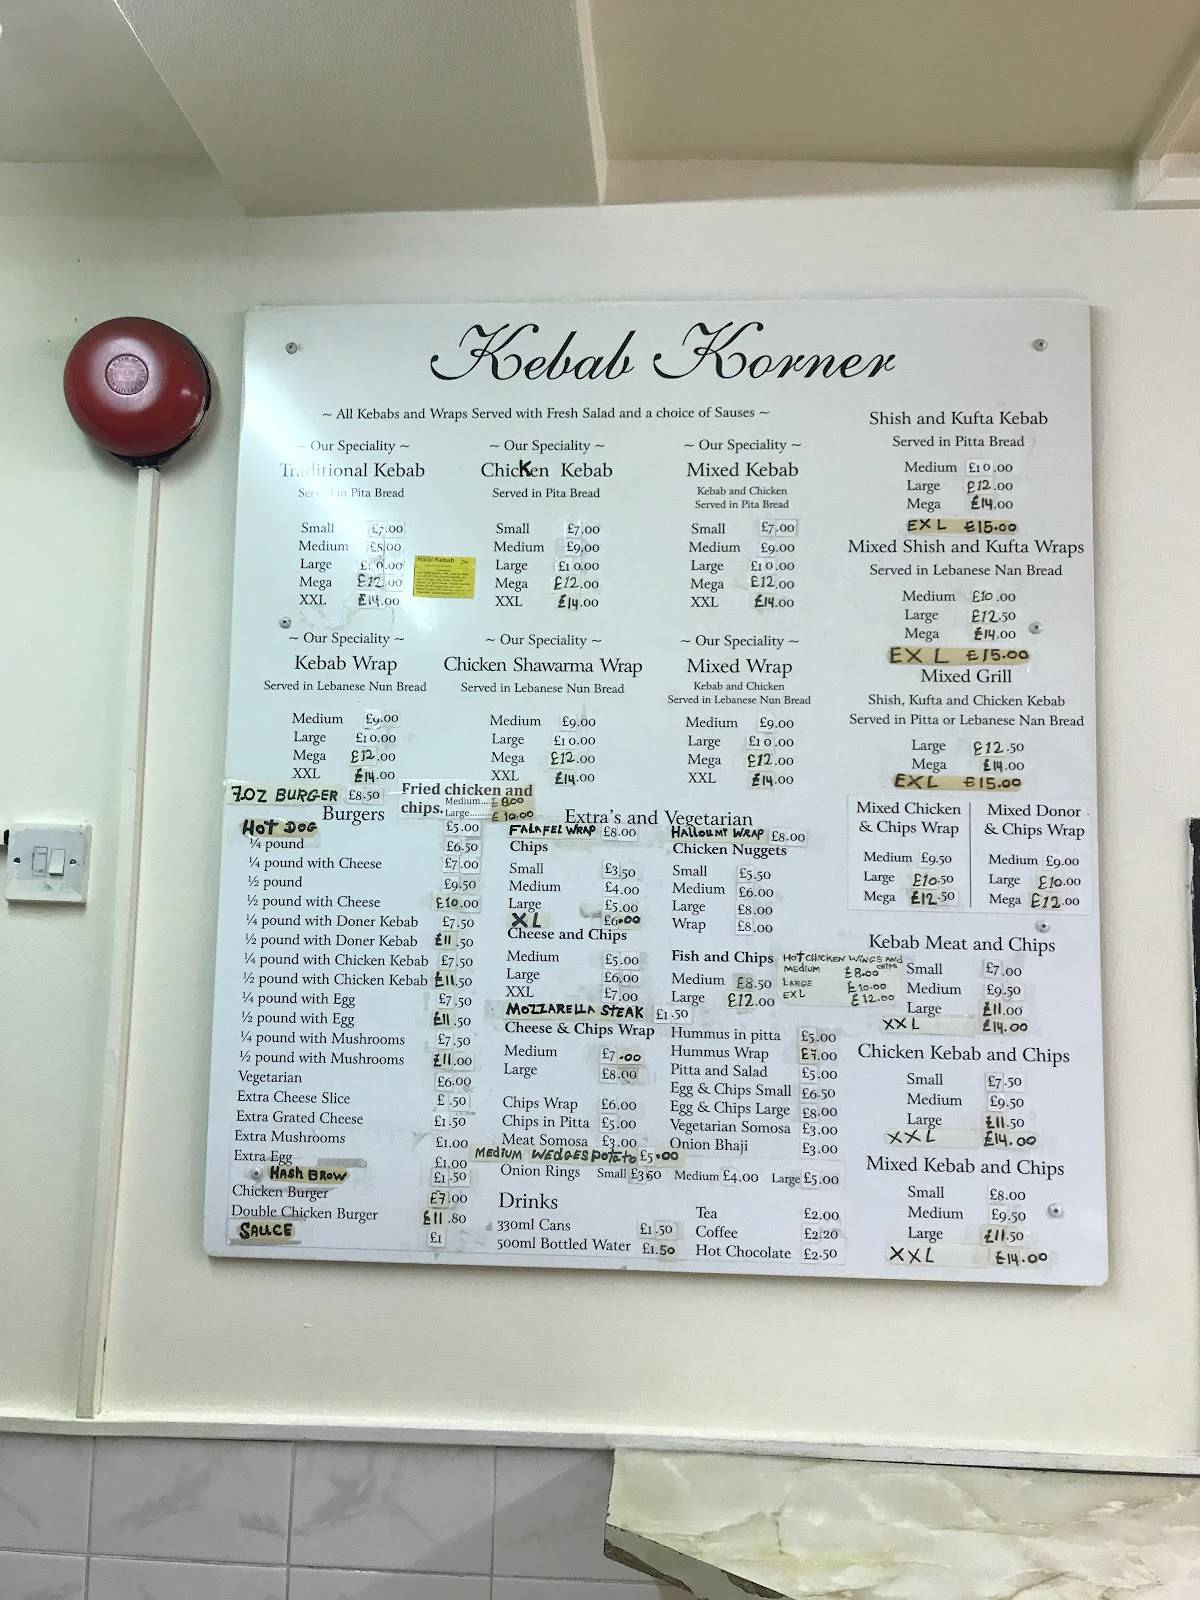 Kebab Korner
~ All Kebabs and Wraps Served with Fresh Salad and a choice of Sauses ~
~ Our Speciality ~
Traditional Kebab
Served in Pita Bread
Small £7.00
Medium £8.00
Large £10.00
Mega £12.00
XXL £14.00
Halal Kebab
~ Our Speciality ~
Chicken Kebab
Served in Pita Bread
Small £7.00
Medium £9.00
Large £10.00
Mega £12.00
XXL £14.00
~ Our Speciality ~
Mixed Kebab
Kebab and Chicken
Served in Pita Bread
Small £7.00
Medium £9.00
Large £10.00
Mega £12.00
XXL £14.00
Shish and Kufta Kebab
Served in Pitta Bread
Medium £10.00
Large £12.00
Mega £14.00
EXL £15.00
Mixed Shish and Kufta Wraps
Served in Lebanese Nan Bread
Medium £10.00
Large £12.50
Mega £14.00
EXL £15.00
~ Our Speciality ~
Kebab Wrap
Served in Lebanese Nun Bread
Medium £9.00
Large £10.00
Mega £12.00
XXL £14.00
~ Our Speciality ~
Chicken Shawarma Wrap
Served in Lebanese Nun Bread
Medium £9.00
Large £10.00
Mega £12.00
XXL £14.00
~ Our Speciality ~
Mixed Wrap
Kebab and Chicken
Served in Lebanese Nun Bread
Medium £9.00
Large £10.00
Mega £12.00
XXL £14.00
Mixed Grill
Shish, Kufta and Chicken Kebab
Served in Pitta or Lebanese Nan Bread
Large £12.50
Mega £14.00
EXL £15.00
7.OZ BURGER £8.50
Burgers
HOT DOG £5.00
¼ pound £6.50
¼ pound with Cheese £7.00
½ pound £9.50
½ pound with Cheese £10.00
¼ pound with Doner Kebab £7.50
½ pound with Doner Kebab £11.50
¼ pound with Chicken Kebab £7.50
½ pound with Chicken Kebab £11.50
¼ pound with Egg £7.50
½ pound with Egg £11.50
¼ pound with Mushrooms £7.50
½ pound with Mushrooms £11.00
Vegetarian £6.00
Extra Cheese Slice £.50
Extra Grated Cheese £1.50
Extra Mushrooms £1.00
Extra Egg £1.00
HASH BROW £1.50
Chicken Burger £7.00
Double Chicken Burger £11.80
SAUCE £1
Fried chicken and
chips. Medium.... £8.00
Large......... £10.00
Extra's and Vegetarian
FALAFEL WRAP £8.00
Chips
Small £3.50
Medium £4.00
Large £5.00
XL £6.00
Cheese and Chips
Medium £5.00
Large £6.00
XXL £7.00
MOZZARELLA STEAK £1.50
Cheese & Chips Wrap
Medium £7.00
Large £8.00
Chips Wrap £6.00
Chips in Pitta £5.00
Meat Somosa £3.00
MEDIUM WEDGES POTATO £5.00
Onion Rings Small £3.50 Medium £4.00 Large £5.00
HALLOUMI WRAP £8.00
Chicken Nuggets
Small £5.50
Medium £6.00
Large £8.00
Wrap £8.00
Fish and Chips
Medium £8.50
Large £12.00
HOT CHICKEN WINGS AND CHIPS
MEDIUM £8.00
LARGE £10.00
EXL £12.00
Hummus in pitta £5.00
Hummus Wrap £7.00
Pitta and Salad £5.00
Egg & Chips Small £6.50
Egg & Chips Large £8.00
Vegetarian Somosa £3.00
Onion Bhaji £3.00
Drinks
330ml Cans £1.50
500ml Bottled Water £1.50
Tea £2.00
Coffee £2.20
Hot Chocolate £2.50
Mixed Chicken
& Chips Wrap
Medium £9.50
Large £10.50
Mega £12.50
Mixed Donor
& Chips Wrap
Medium £9.00
Large £10.00
Mega £12.00
Kebab Meat and Chips
Small £7.00
Medium £9.50
Large £11.00
XXL £14.00
Chicken Kebab and Chips
Small £7.50
Medium £9.50
Large £11.50
XXL £14.00
Mixed Kebab and Chips
Small £8.00
Medium £9.50
Large £11.50
XXL £14.00